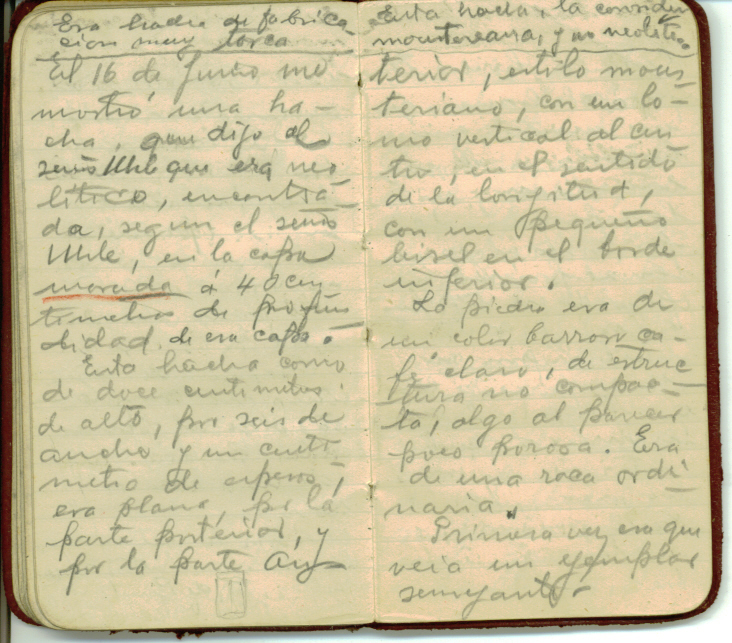 Era hacha de fabrica-
cion muy tosca
El 16 de Junio me
mostró una ha-
cha, que dijo el
señor Uhle que era neo
lítico, encontra-
da, segun el señor
Uhle, en la capa
morada á 40 cen
timetros de profun
didad de esa capa.
Esta hacha como
de doce centimetros
de alto, por seis de
ancho y un centi
metro de espesor,
era plana, por la
parte posterior, y
por la parte an
Esta hacha, la considero
moustereana, y no neolitica
terior, estilo mous
teriano, con un lo-
mo vertical al cen
tro, en el sentido
de la longitud,
con un pequeño
bisel en el borde
inferior.
La piedra era de
un color barroso ca-
fé claro, de estruc
tura no compac-
ta, algo al parecer
poco porosa. Era
de una roca ordi
naria.
Primera vez era que
veia un ejemplar
semejante.